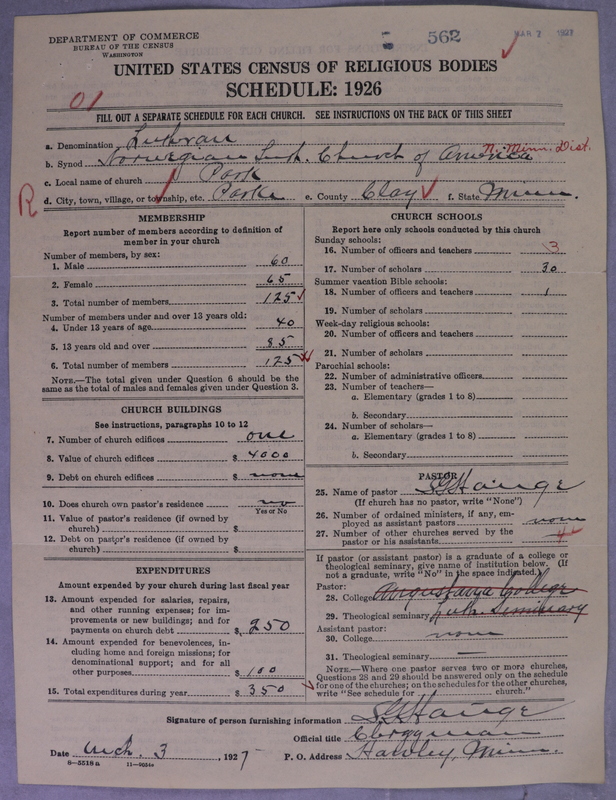 DEPARTMENT OF COMMERCE
BUREAU OF THE CENSUS
WASHINGTON
5 562 MAR 7 1927
UNITED STATES CENSUS OF RELIGIOUS BODIES
SCHEDULE: 1926
01
FILL OUT A SEPARATE SCHEDULE FOR EACH CHURCH. SEE INSTRUCTIONS ON THE BACK OF THIS SHEET
a. Denomination Lutheran
b. Synod Norwegian Luth. Church of America N. Minn. Dist.
c. Local name of church Park
R
d. City, town, village, or township, etc. Parke e. County Clay f. State Minn.
MEMBERSHIP
Report number of members according to definition of
member in your church
Number of members, by sex:
1. Male 60
2. Female 65
3. Total number of members 125
Number of members under and over 13 years old:
4. Under 13 years of age 40
5. 13 years old and over 85
6. Total number of members 125
NOTE.—The total given under Question 6 should be the
same as the total of males and females given under Question 3.
CHURCH BUILDINGS
See instructions, paragraphs 10 to 12
7. Number of church edifices one
8. Value of church edifices $ 4000
9. Debt on church edifices $ none
10. Does church own pastor's residence no
Yes or No
11. Value of pastor's residence (if owned by
church) $
12. Debt on pastor's residence (if owned by
church) $
EXPENDITURES
Amount expended by your church during last fiscal year
13. Amount expended for salaries, repairs,
and other running expenses; for im-
provements or new building; and for
payments on church debt $ 250
14. Amount expended for benevolences, in-
cluding home and foreign missions; for
denominational support; and for all
other purposes $ 100
15. Total expenditures during year $ 350
CHURCH SCHOOLS
Report here only schools conducted by this church
Sunday schools:
16. Number of officers and teachers 3
17. Number of scholars 30
Summer vacation Bible schools:
18. Number of officers and teachers 1
19. Number of scholars
Week-day religious schools:
20. Number of officers and teachers
21. Number of scholars
Parochial schools:
22. Number of administrative officers
23. Number of teachers—
a. Elementary (grades 1 to 8)
b. Secondary
24. Number of scholars—
a. Elementary (grades 1 to 8)
b. Secondary
PASTOR
25. Name of pastor S G Hauge
(If church has no pastor, write "None")
26. Number of ordained ministers, if any, em-
ployed as assistant pastors none
27. Number of other churches served by the
pastor or his assistants 4
If pastor (or assistant pastor) is a graduate of a college or
theological seminary, give name of institution below. (If
not a graduate, write "No" in the space indicated.)
Pastor:
28. College Augustana College
29. Theological seminary Luth. Seminary
Assistant pastor:
30. College none
31. Theological seminary —
NOTE.—Where one pastor serves two or more churches,
Questions 28 and 29 should be answered only on the schedule
for one of the churches; on the schedules for the other churches,
write "See schedule for church."
Signature of person furnishing information S G Hauge
Official title Clergyman
Date Mch. 3, 1927 P. O. Address Hawley, Minn.
8—5518a 11—9054